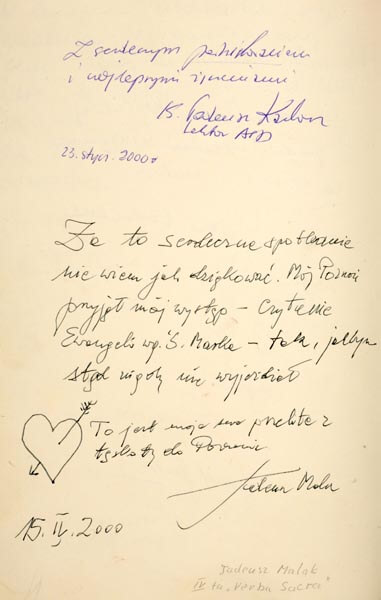 Z serdecznym
i najlepszymi życzeniami
K. Tadeusz
23. stycz. 2000 r
Za to serdeczne spotkanie
nie wiem jak dziękować. Mój Poznań
przyjął mój występ – Czytanie
Ewangelii wg. Ś. Marka – tak, jakbym
stąd nigdy nie wyjeżdżał
To jest moje z
tęsknoty do Poznania
Tadeusz Malak
15. IV. 2000
Tadeusz Malak
IV ta „Verba Sacra"